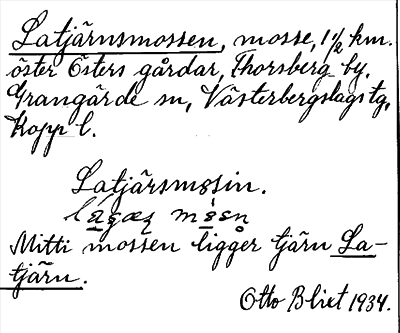 Latjärnsmossen, mosse, 1 1/2 km.
öster Östers gårdar, Thorsberg by,
Grangärde sn, Västerbergslags tg,
Kopp l.
Latjärsmosin.
Mitti mossen ligger tjärn La-
tjärn.
Otto Blixt 1934.